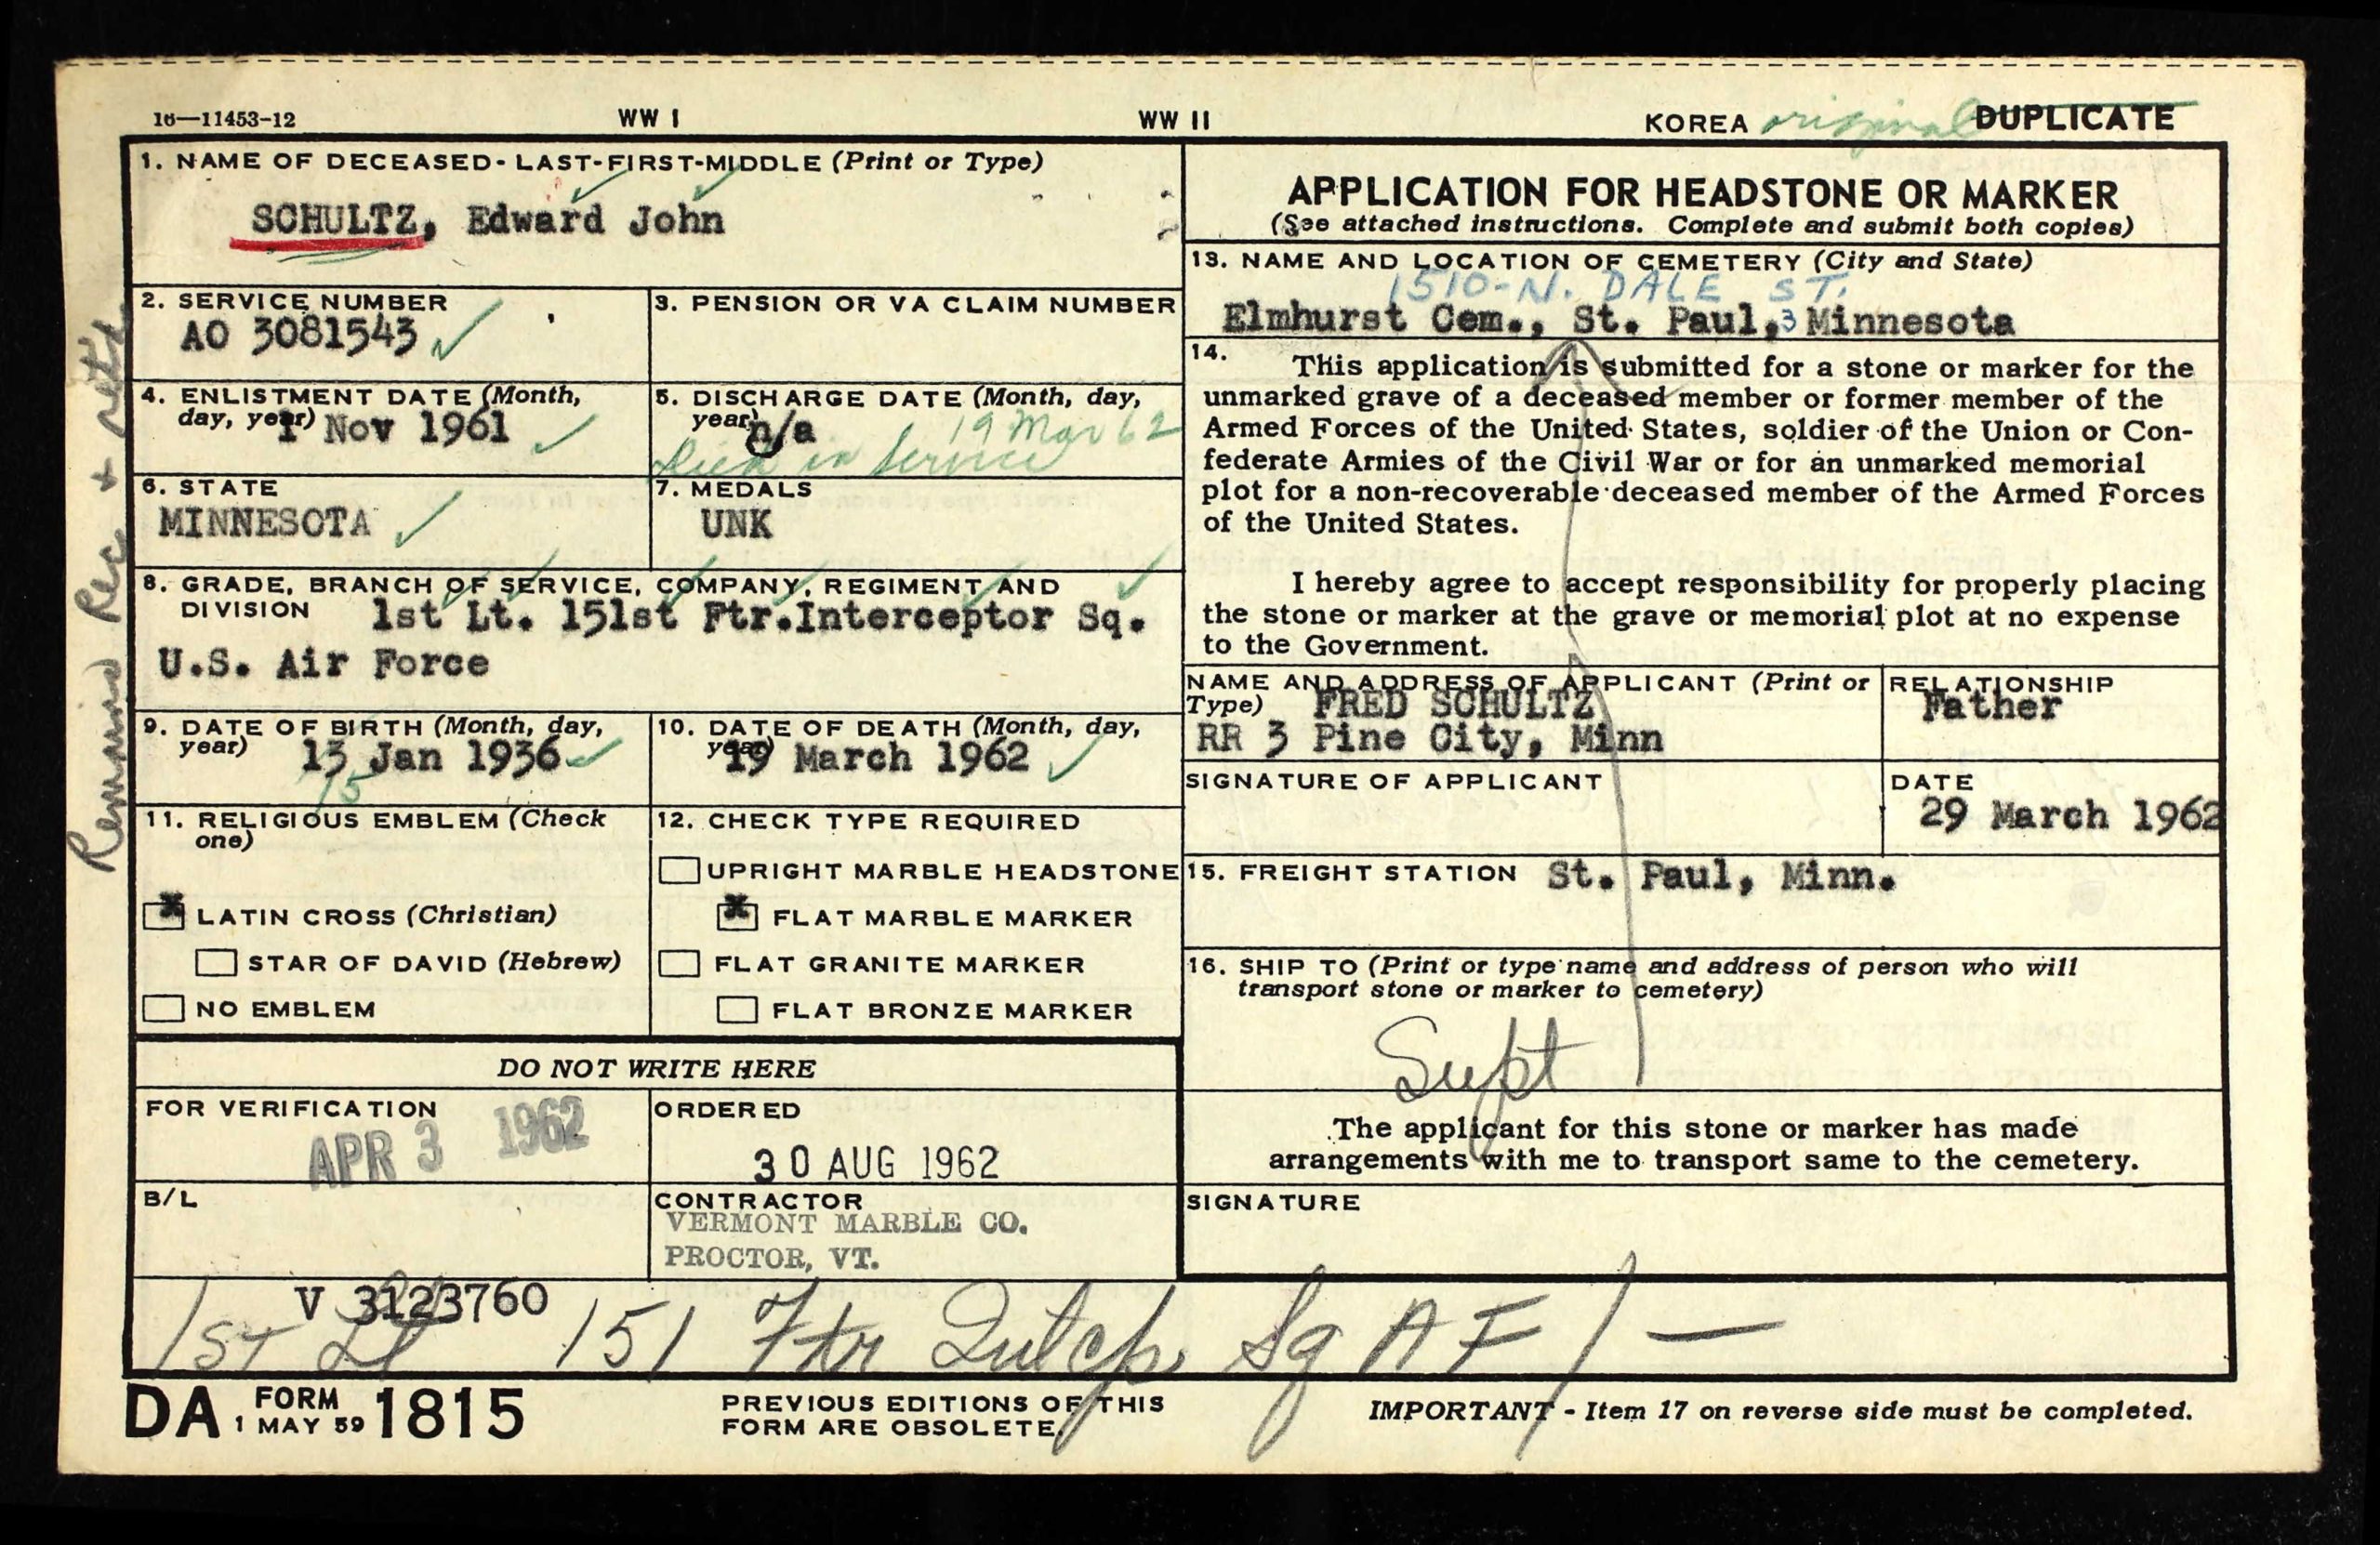 16—11453-12 WW I WW II KOREA original DUPLICATE
1. NAME OF DECEASED - LAST-FIRST-MIDDLE (Print or Type)
SCHULTZ, Edward John
2. SERVICE NUMBER
AO 3081543
3. PENSION OR VA CLAIM NUMBER
4. ENLISTMENT DATE (Month,
day, year) 1 Nov 1961
5. DISCHARGE DATE (Month, day,
year) n/a 19 Mar 62
Died in Service
6. STATE
MINNESOTA
7. MEDALS
UNK
8. GRADE, BRANCH OF SERVICE, COMPANY, REGIMENT AND
DIVISION 1st Lt. 151st Ftr.Interceptor Sq.
U.S. Air Force
9. DATE OF BIRTH (Month, day,
year) 13 Jan 1936
15
10. DATE OF DEATH (Month, day,
year) 19 March 1962
11. RELIGIOUS EMBLEM (Check
one)
x LATIN CROSS (Christian)
STAR OF DAVID (Hebrew)
NO EMBLEM
12. CHECK TYPE REQUIRED
UPRIGHT MARBLE HEADSTONE
x FLAT MARBLE MARKER
FLAT GRANITE MARKER
FLAT BRONZE MARKER
DO NOT WRITE HERE
FOR VERIFICATION
APR 3 1962
ORDERED
30 AUG 1962
B/L
CONTRACTOR
VERMONT MARBLE CO.
PROCTOR, VT.
APPLICATION FOR HEADSTONE OR MARKER
(See attached instructions. Complete and submit both copies)
13. NAME AND LOCATION OF CEMETERY (City and State)
1510-N. DALE ST.
Elmhurst Cem., St. Paul,3 Minnesota
14. This application is submitted for a stone or marker for the
unmarked grave of a deceased member or former member of the
Armed Forces of the United States, soldier of the Union or Con-
federate Armies of the Civil War or for an unmarked memorial
plot for a non-recoverable deceased member of the Armed Forces
of the United States.
I hereby agree to accept responsibility for properly placing
the stone or marker at the grave or memorial plot at no expense
to the Government.
NAME AND ADDRESS OF APPLICANT (Print or
Type) FRED SCHULTZ
RR 3 Pine City, Minn
RELATIONSHIP
Father
SIGNATURE OF APPLICANT
DATE
29 March 1962
15. FREIGHT STATION St. Paul, Minn.
16. SHIP TO (Print or type name and address of person who will
transport stone or marker to cemetery)
Supt
The applicant for this stone or marker has made
arrangements with me to transport same to the cemetery.
SIGNATURE
V 3123760
1ST Lt 151 Ftr Intcp Sq A F
DA FORM 1 MAY 59 1815
PREVIOUS EDITIONS OF THIS
FORM ARE OBSOLETE.
IMPORTANT - Item 17 on reverse side must be completed.
Rec + ret'd